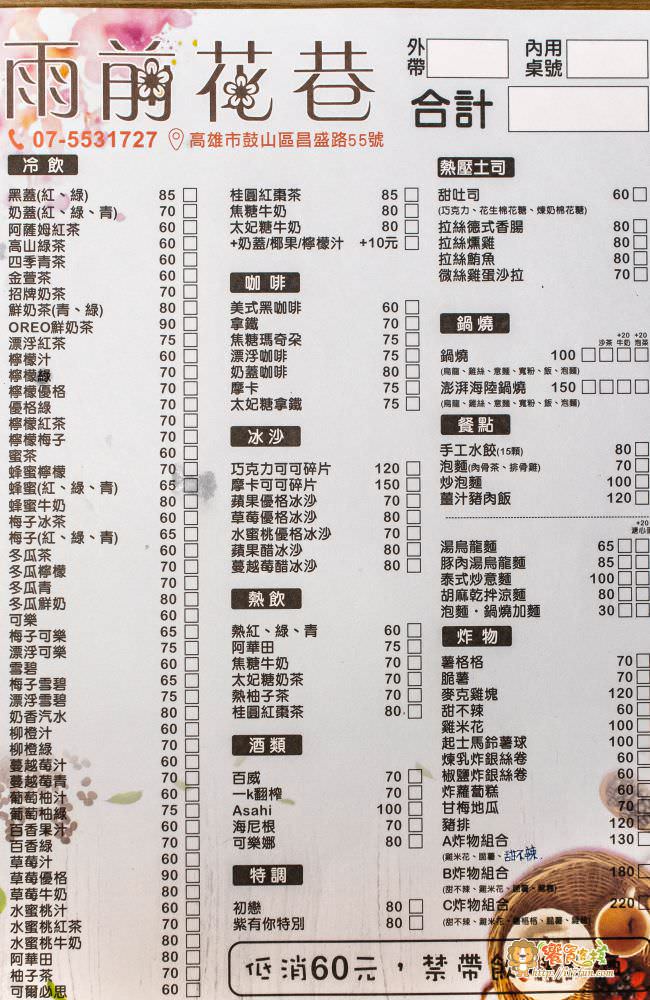 雨前花巷
外帶
內用桌號
合計
07-5531727 高雄市鼓山區昌盛路55號
冷飲
黑蓋(紅、綠) 85
奶蓋(紅、綠、青) 70
阿薩姆紅茶 60
高山綠茶 60
四季青茶 60
金萱茶 60
招牌奶茶 70
鮮奶茶(青、綠) 80
OREO鮮奶茶 90
漂浮紅茶 75
檸檬汁 60
檸檬綠 70
檸檬優格 70
優格綠 70
檸檬紅茶 70
檸檬梅子 70
蜜茶 60
蜂蜜檸檬 70
蜂蜜(紅、綠、青) 65
蜂蜜牛奶 80
梅子冰茶 60
梅子(紅、綠、青) 65
冬瓜茶 60
冬瓜檸檬 70
冬瓜青 70
冬瓜鮮奶 80
可樂 60
梅子可樂 65
漂浮可樂 75
雪碧 60
梅子雪碧 65
漂浮雪碧 75
奶香汽水 80
柳橙汁 60
柳橙綠 70
蔓越莓汁 60
蔓越莓青 70
葡萄柚汁 60
葡萄柚綠 75
百香果汁 60
百香綠 70
草莓汁 60
草莓優格 90
草莓牛奶 80
水蜜桃汁 60
水蜜桃紅茶 70
水蜜桃牛奶 80
阿華田 80
柚子茶 70
可爾必思 60
桂圓紅棗茶 85
焦糖牛奶 80
太妃糖牛奶 80
+奶蓋/椰果/檸檬汁 +10元
咖啡
美式黑咖啡 60
拿鐵 70
焦糖瑪奇朵 75
漂浮咖啡 75
奶蓋咖啡 80
摩卡 75
太妃糖拿鐵 75
冰沙
巧克力可可碎片 120
摩卡可可碎片 150
蘋果優格冰沙 70
草莓優格冰沙 80
水蜜桃優格冰沙 70
蘋果醋冰沙 80
蔓越莓醋冰沙 80
熱飲
熱紅、綠、青 60
阿華田 75
焦糖牛奶 70
太妃糖奶茶 70
熱柚子茶 70
桂圓紅棗茶 80
酒類
百威 70
一k翻榨 70
Asahi 100
海尼根 70
可樂娜 80
特調
初戀 80
紫有你特別 80
熱壓土司
甜吐司 60
(巧克力、花生棉花糖、煉奶棉花糖)
拉絲德式香腸 80
拉絲燻雞 80
拉絲鮪魚 80
微絲雞蛋沙拉 70
鍋燒
+20 +20
沙茶 牛奶 泡菜
鍋燒 100
(烏龍、雞絲、意麵、寬粉、飯、泡麵)
澎湃海陸鍋燒 150
(烏龍、雞絲、意麵、寬粉、飯、泡麵)
餐點
手工水餃(15顆) 80
泡麵(肉骨茶、排骨雞) 70
炒泡麵 100
薑汁豬肉飯 120
+20
湯烏龍麵 65
豚肉湯烏龍麵 85
泰式炒意麵 100
胡麻乾拌涼麵 80
泡麵．鍋燒加麵 30
炸物
薯格格 70
脆薯 70
麥克雞塊 120
甜不辣 60
雞米花 100
起士馬鈴薯球 100
煉乳炸銀絲卷 60
椒鹽炸銀絲卷 60
炸蘿蔔糕 60
甘梅地瓜 70
豬排 120
A炸物組合 130
(雞米花、脆薯、甜不辣
B炸物組合 180
(甜不辣、雞米花、
C炸物組合 220
(甜不辣、雞米花、薯格格、脆薯、
低消60元，禁帶
饗食客棧